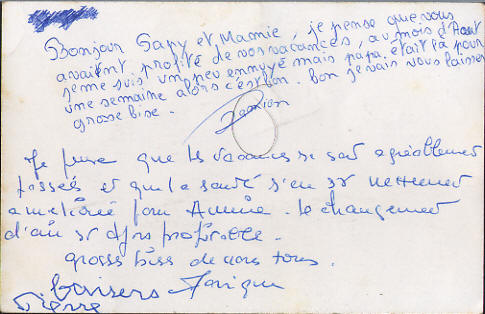 Bonjour Papy et Mamie, je pense que vous
avaient profité de vos vacances, au mois d'Aout
jeme suis un peu ennuyé mais papa était là pour
une semaine alors c'est bon. bon je vais vous laisser
grosse bise.
Damien
Je pense que les vacances se sont agréablement
passées et que la santé s'en est nettement
améliorée pour Annie. le changement
d'air est très profitable.
grosses bises de nous tous.
baisers Monique
Pierre